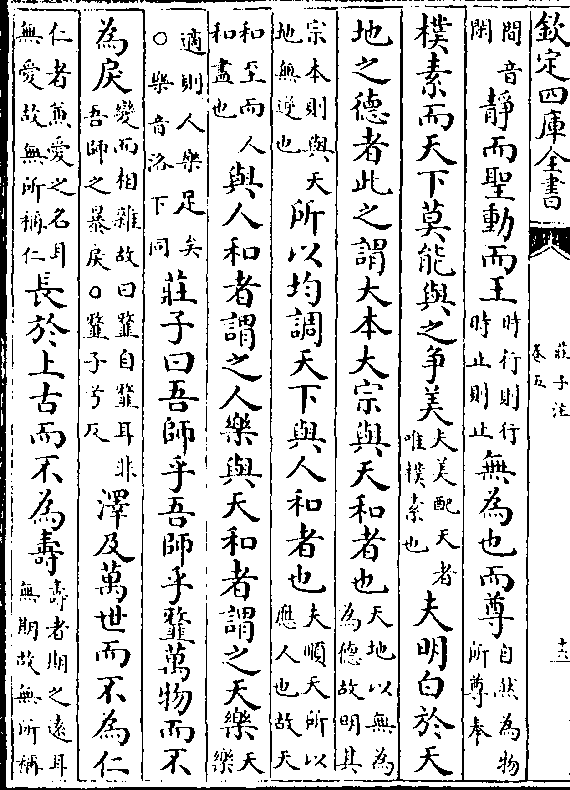 欽定四庫全書
莊子注
卷五
十三
間音閑靜而聖動而王時行則行時止則止無為也而尊自然為物所尊奉
樸素而天下莫能與之爭美夫美配天者唯樸素也夫明白於天
地之德者此之謂大本大宗與天和者也天地以無為為德故明其
宗本則與天地無逆也所以均調天下與人和者也夫順天所以應人也故天
和至而人和盡也與人和者謂之人樂與天和者謂之天樂天樂
適則人樂足矣○樂音洛下同莊子曰吾師乎吾師乎𩐎萬物而不
為戾變而相雜故曰𩐎自𩐎耳非吾師之暴戾○𩐎子兮反澤及萬世而不為仁
仁者兼愛之名耳無愛故無所稱仁長於上古而不為壽壽者期之遠耳無期故無所稱